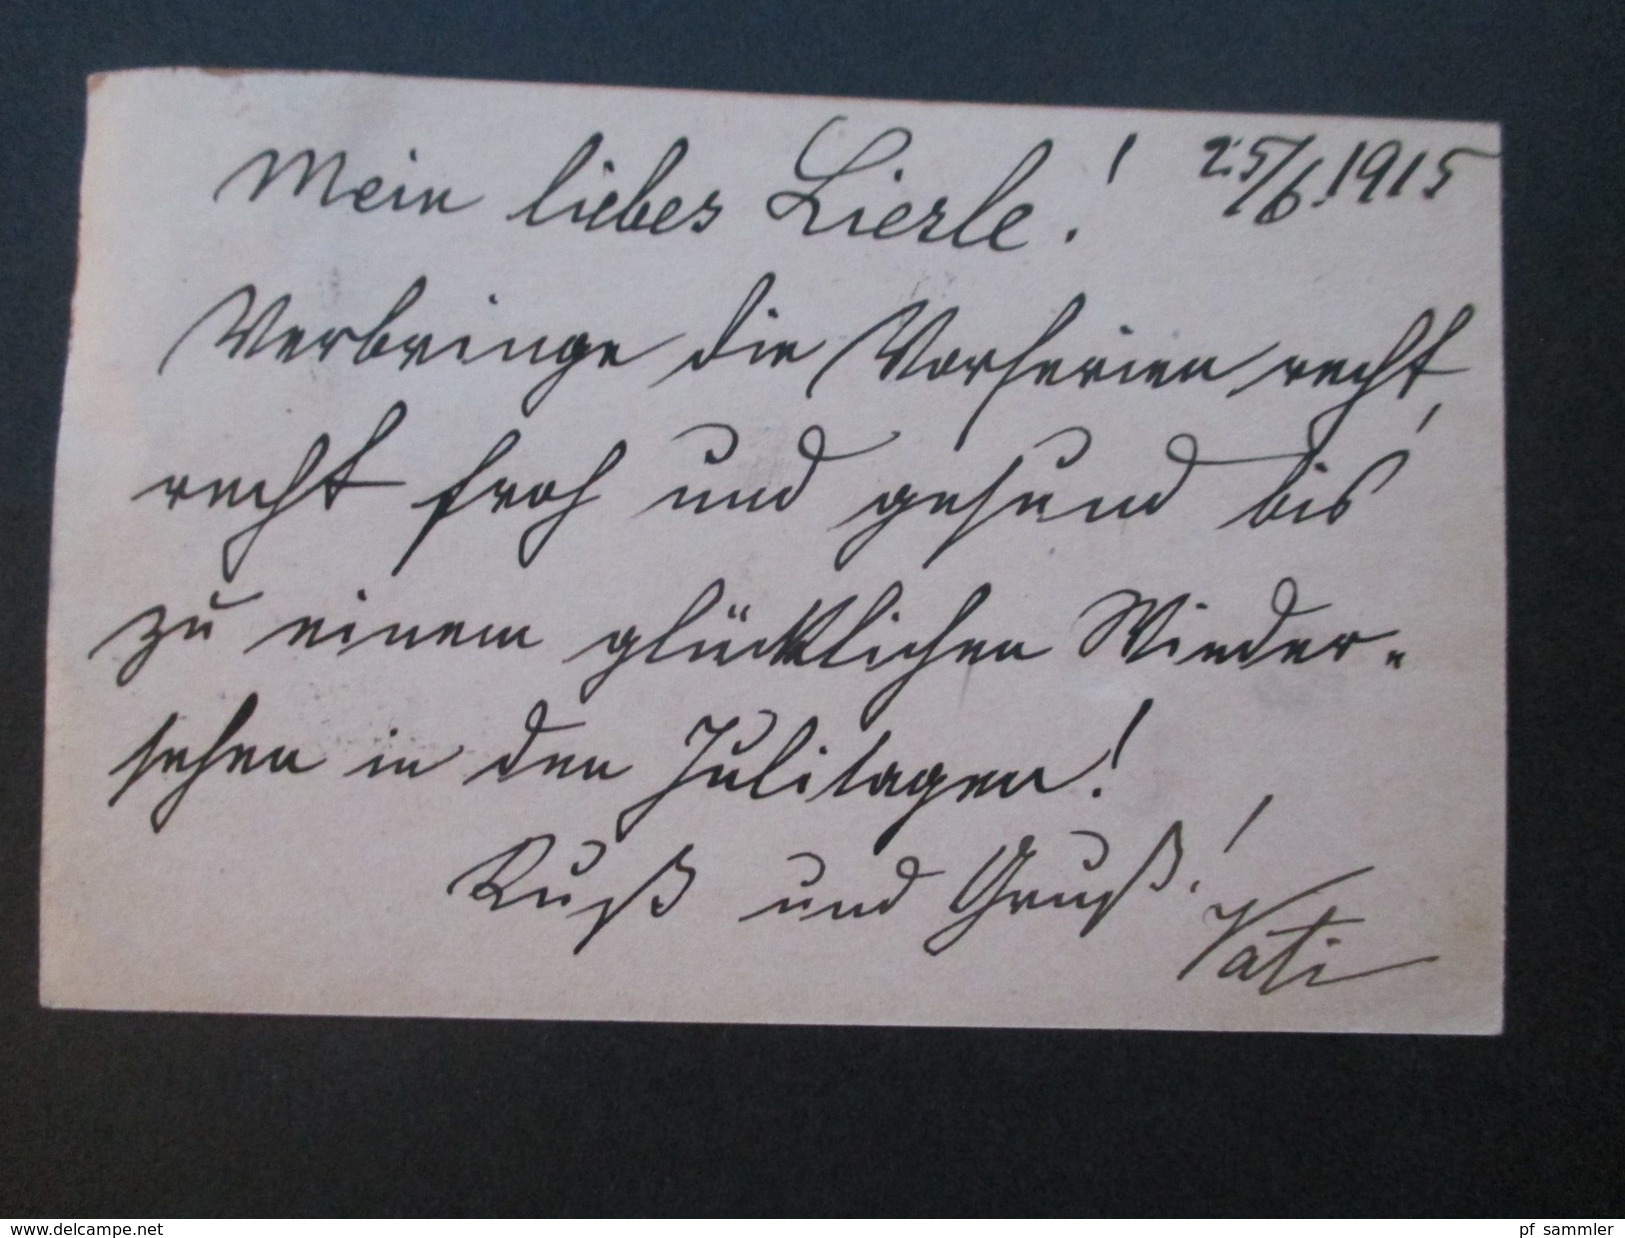 Mein liebes Lierle! 25/6.1915
Verbringe die Vorferien recht,
recht froh und gesund bis
zu einem glücklichen Wieder-
sehen in den Julitagen!
Kuß und Gruß!
Vati
www.delcampe.net
pf_sammler